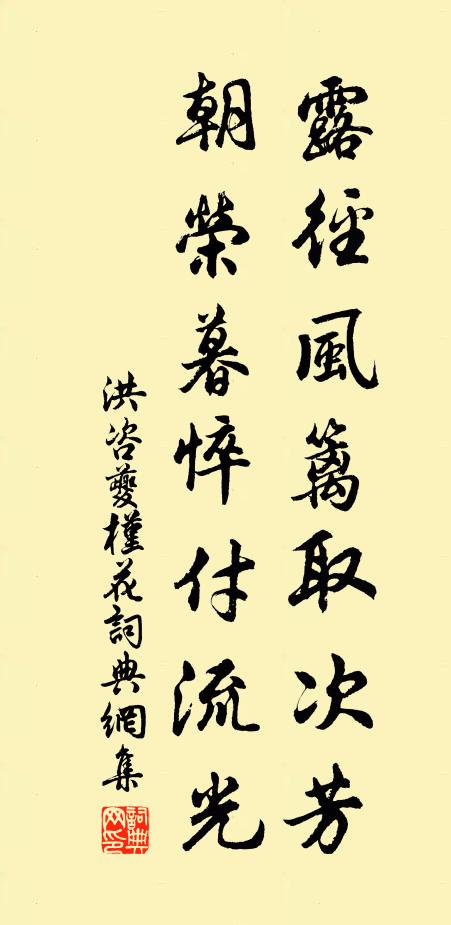 露徑風篱取次芳
朝榮暮悴付流光
洪咨夔槿花詞典網集
詞典网印